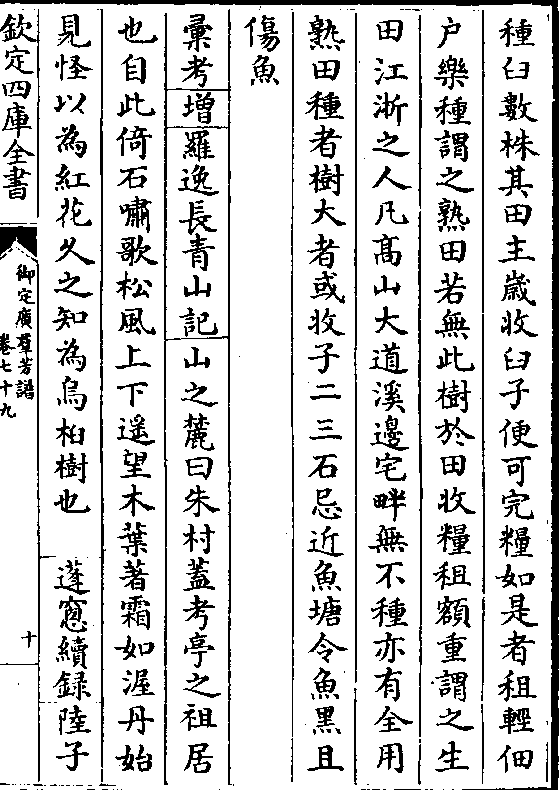 種臼數株其田主歲收臼子便可完糧如是者租輕佃
户樂種謂之熟田若無此樹於田收糧租額重謂之生
田江浙之人凡髙山大道溪邊宅畔無不種亦有全用
熟田種者樹大者或收子二三石忌近魚塘令魚黑且
傷魚
彚考増羅逸長青山記山之麓曰朱村蓋考亭之祖居
也自此倚石嘯歌松風上下遥望木葉著霜如渥丹始
見怪以為紅花久之知為烏桕樹也　蓬窻續録陸子
欽定四庫全書
御定廣羣芳譜
卷七十九
十